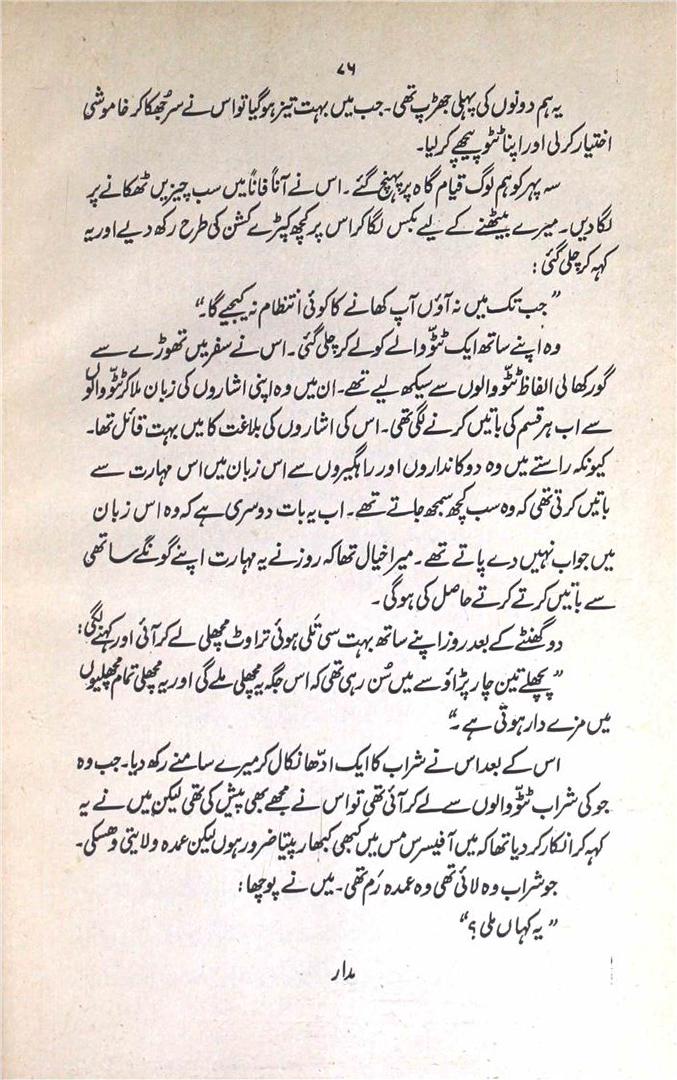 ۷۶
یہ ہم دونوں کی پہلی جھڑپ تھی۔ جب میں بہت تیز ہوگیا تو اس نے سر جُھکا کر خاموشی
اختیار کرلی اور اپنا ٹٹو پیچھے کر لیا۔
سہ پہر کو ہم لوگ قیام گاہ پر پہنچ گئے۔ اس نے آناً فاناً میں سب چیزیں ٹھکانے پر
لگا دیں۔ میرے بیٹھنے کے لیے بکس لگا کر اس پر کچھ کپڑے کشن کی طرح رکھ دیے اور یہ
کہہ کر چلی گئی :
”جب تک میں نہ آؤں آپ کھانے کا کوئی انتظام نہ کیجیے گا۔“
وہ اپنے ساتھ ایک ٹٹّو والے کو لے کر چلی گئی۔ اس نے سفر میں تھوڑے سے
گورکھالی الفاظ ٹٹّو والوں سے سیکھ لیے تھے۔ ان میں وہ اپنی اشاروں کی زبان ملا کر ٹٹّو والوں
سے اب ہر قسم کی باتیں کرنے لگی تھی۔ اس کی اشاروں کی بلاغت کا میں بہت قائل تھا۔
کیونکہ راستے میں وہ دوکانداروں اور راہگیروں سے اس زبان میں اس مہارت سے
باتیں کرتی تھی کہ وہ سب کچھ سمجھ جاتے تھے۔ اب یہ بات دوسری ہے کہ وہ اس زبان
میں جواب نہیں دے پاتے تھے۔ میرا خیال تھا کہ روز نے یہ مہارت اپنے گونگے ساتھی
سے باتیں کرتے کرتے حاصل کی ہوگی۔
دو گھنٹے کے بعد روز اپنے ساتھ بہت سی تَلی ہوئی تراوٹ مچھلی لے کر آئی اور کہنے لگی :
”پچھلے تین چار پڑاؤ سے میں سُن رہی تھی کہ اس جگہ یہ مچھلی ملے گی اور یہ مچھلی تمام مچھلیوں
میں مزے دار ہوتی ہے۔“
اس کے بعد اس نے شراب کا ایک ادّھا نکال کر میرے سامنے رکھ دیا۔ جب وہ
جو کی شراب ٹٹّو والوں سے لے کر آئی تھی تو اس نے مجھے بھی پیش کی تھی لیکن میں نے یہ
کہہ کر انکار کر دیا تھا کہ میں آفیسرس مس میں کبھی کبھار پیتا ضرور ہوں لیکن عمدہ ولایتی وھسکی۔
جو شراب وہ لائی تھی وہ عمدہ رَم تھی۔ میں نے پوچھا :
”یہ کہاں ملی؟“
مدار